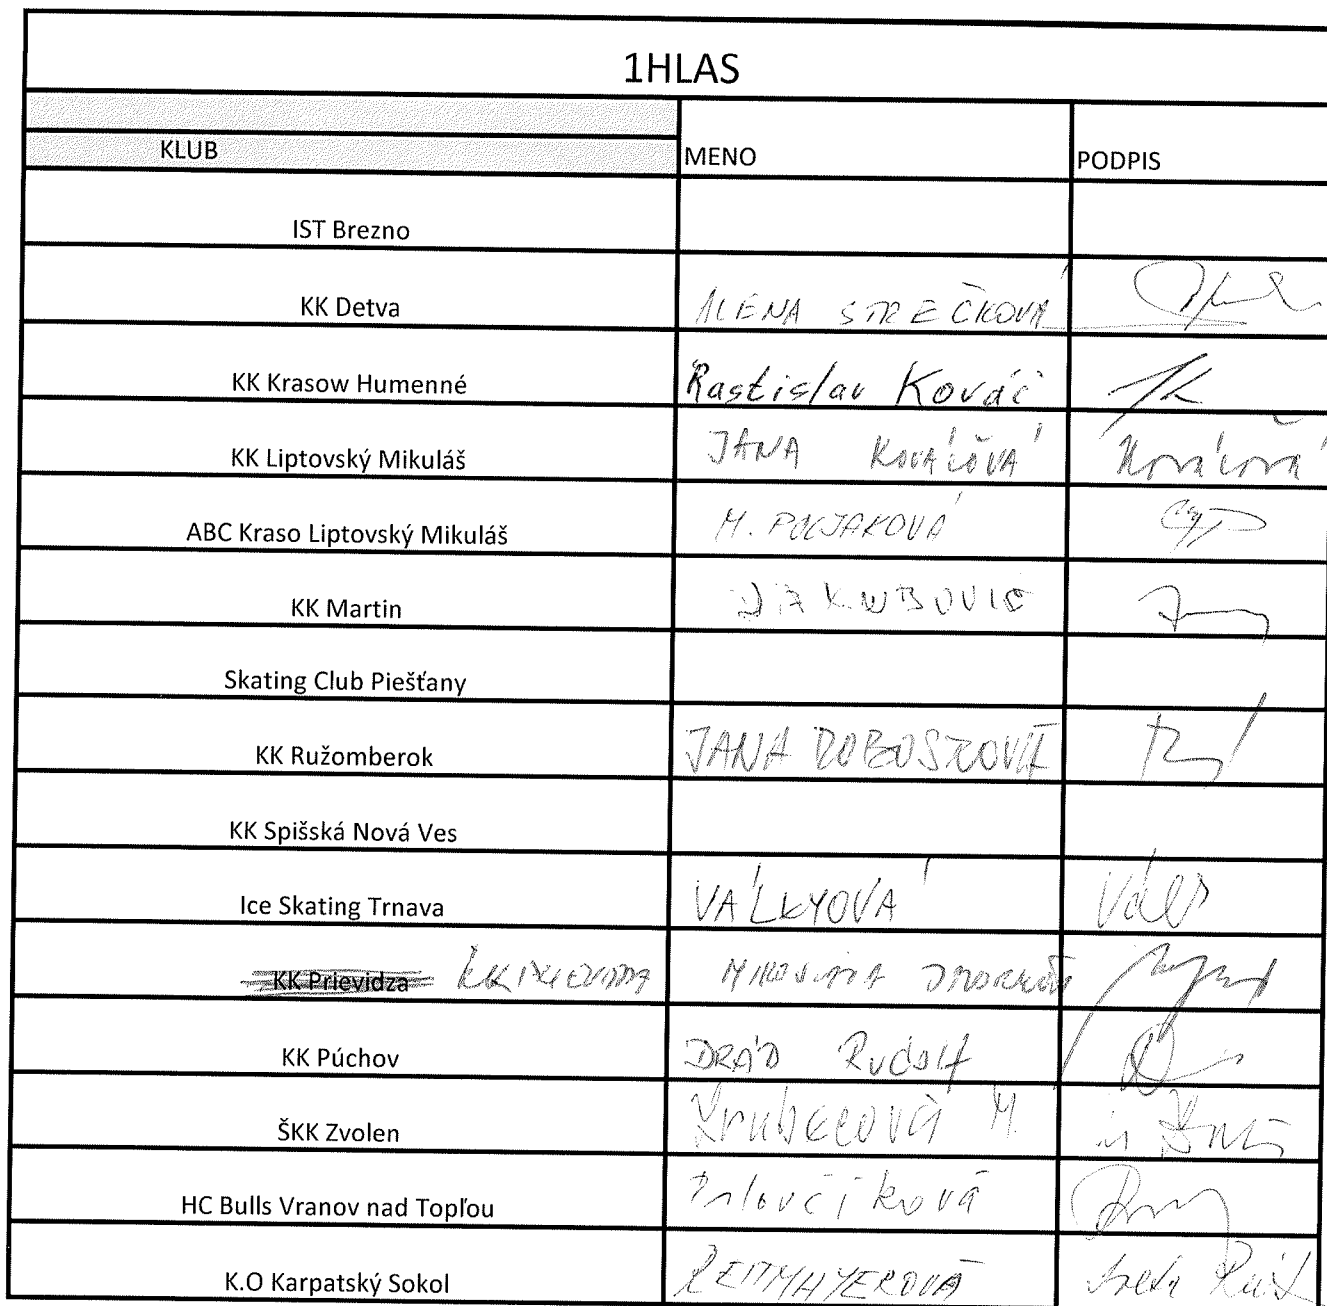 1HLAS
KLUB MENO PODPIS
IST Brezno
KK Detva ALENA STREČKOVÁ
KK Krasow Humenné Rastislav Kováč
KK Liptovský Mikuláš JANA KOVÁČOVÁ Kováčová
ABC Kraso Liptovský Mikuláš M. POLJAKOVÁ
KK Martin JAKUBOVIE
Skating Club Piešťany
KK Ružomberok JANA DOBOSZOVÁ
KK Spišská Nová Ves
Ice Skating Trnava VÁLKYOVÁ
KK Prievidza KK PRIEVIDZA MIROSLAVA
KK Púchov DRÁB Rudolf
ŠKK Zvolen M.
HC Bulls Vranov nad Topľou
K.O Karpatský Sokol REITMAYEROVÁ